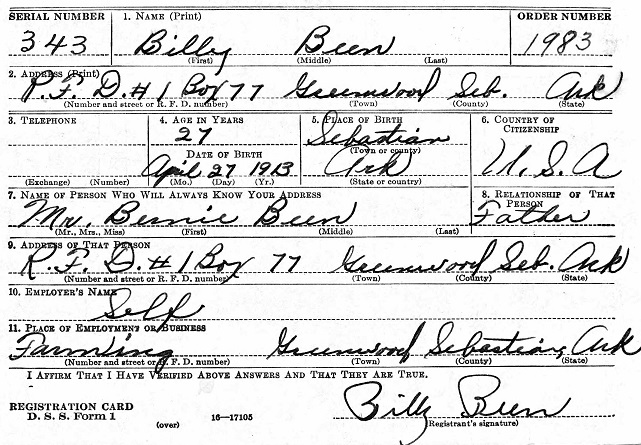 SERIAL NUMBER 1. NAME (Print) ORDER NUMBER
343 Billy Been 1983
(First) (Middle) (Last)
2. ADDRESS (Print)
R.F.D. # 1 Box 77 Greenwood Seb. Ark
(Number and street or R. F. D. number) (Town) (County) (State)
3. TELEPHONE 4. AGE IN YEARS 5. PLACE OF BIRTH 6. COUNTRY OF CITIZENSHIP
27 Sebastian
(Town or county)
DATE OF BIRTH
April 27 1913 Ark U.S.A
(Exchange) (Number) (Mo.) (Day) (Yr.) (State or country)
7. NAME OF PERSON WHO WILL ALWAYS KNOW YOUR ADDRESS 8. RELATIONSHIP OF THAT PERSON
Mr. Bennie Been Father
(Mr., Mrs., Miss) (First) (Middle) (Last)
9. ADDRESS OF THAT PERSON
R.F.D. # 1 Box 77 Greenwood Seb. Ark
(Number and street or R. F. D. number) (Town) (County) (State)
10. EMPLOYER'S NAME
Self
11. PLACE OF EMPLOYMENT OR BUSINESS
Farming Greenwood, Sebastian, Ark
(Number and street or R. F. D. number) (Town) (County) (State)
I AFFIRM THAT I HAVE VERIFIED ABOVE ANSWERS AND THAT THEY ARE TRUE.
REGISTRATION CARD
D. S. S. Form 1 (over) 16—17105 Billy Been
(Registrant's signature)